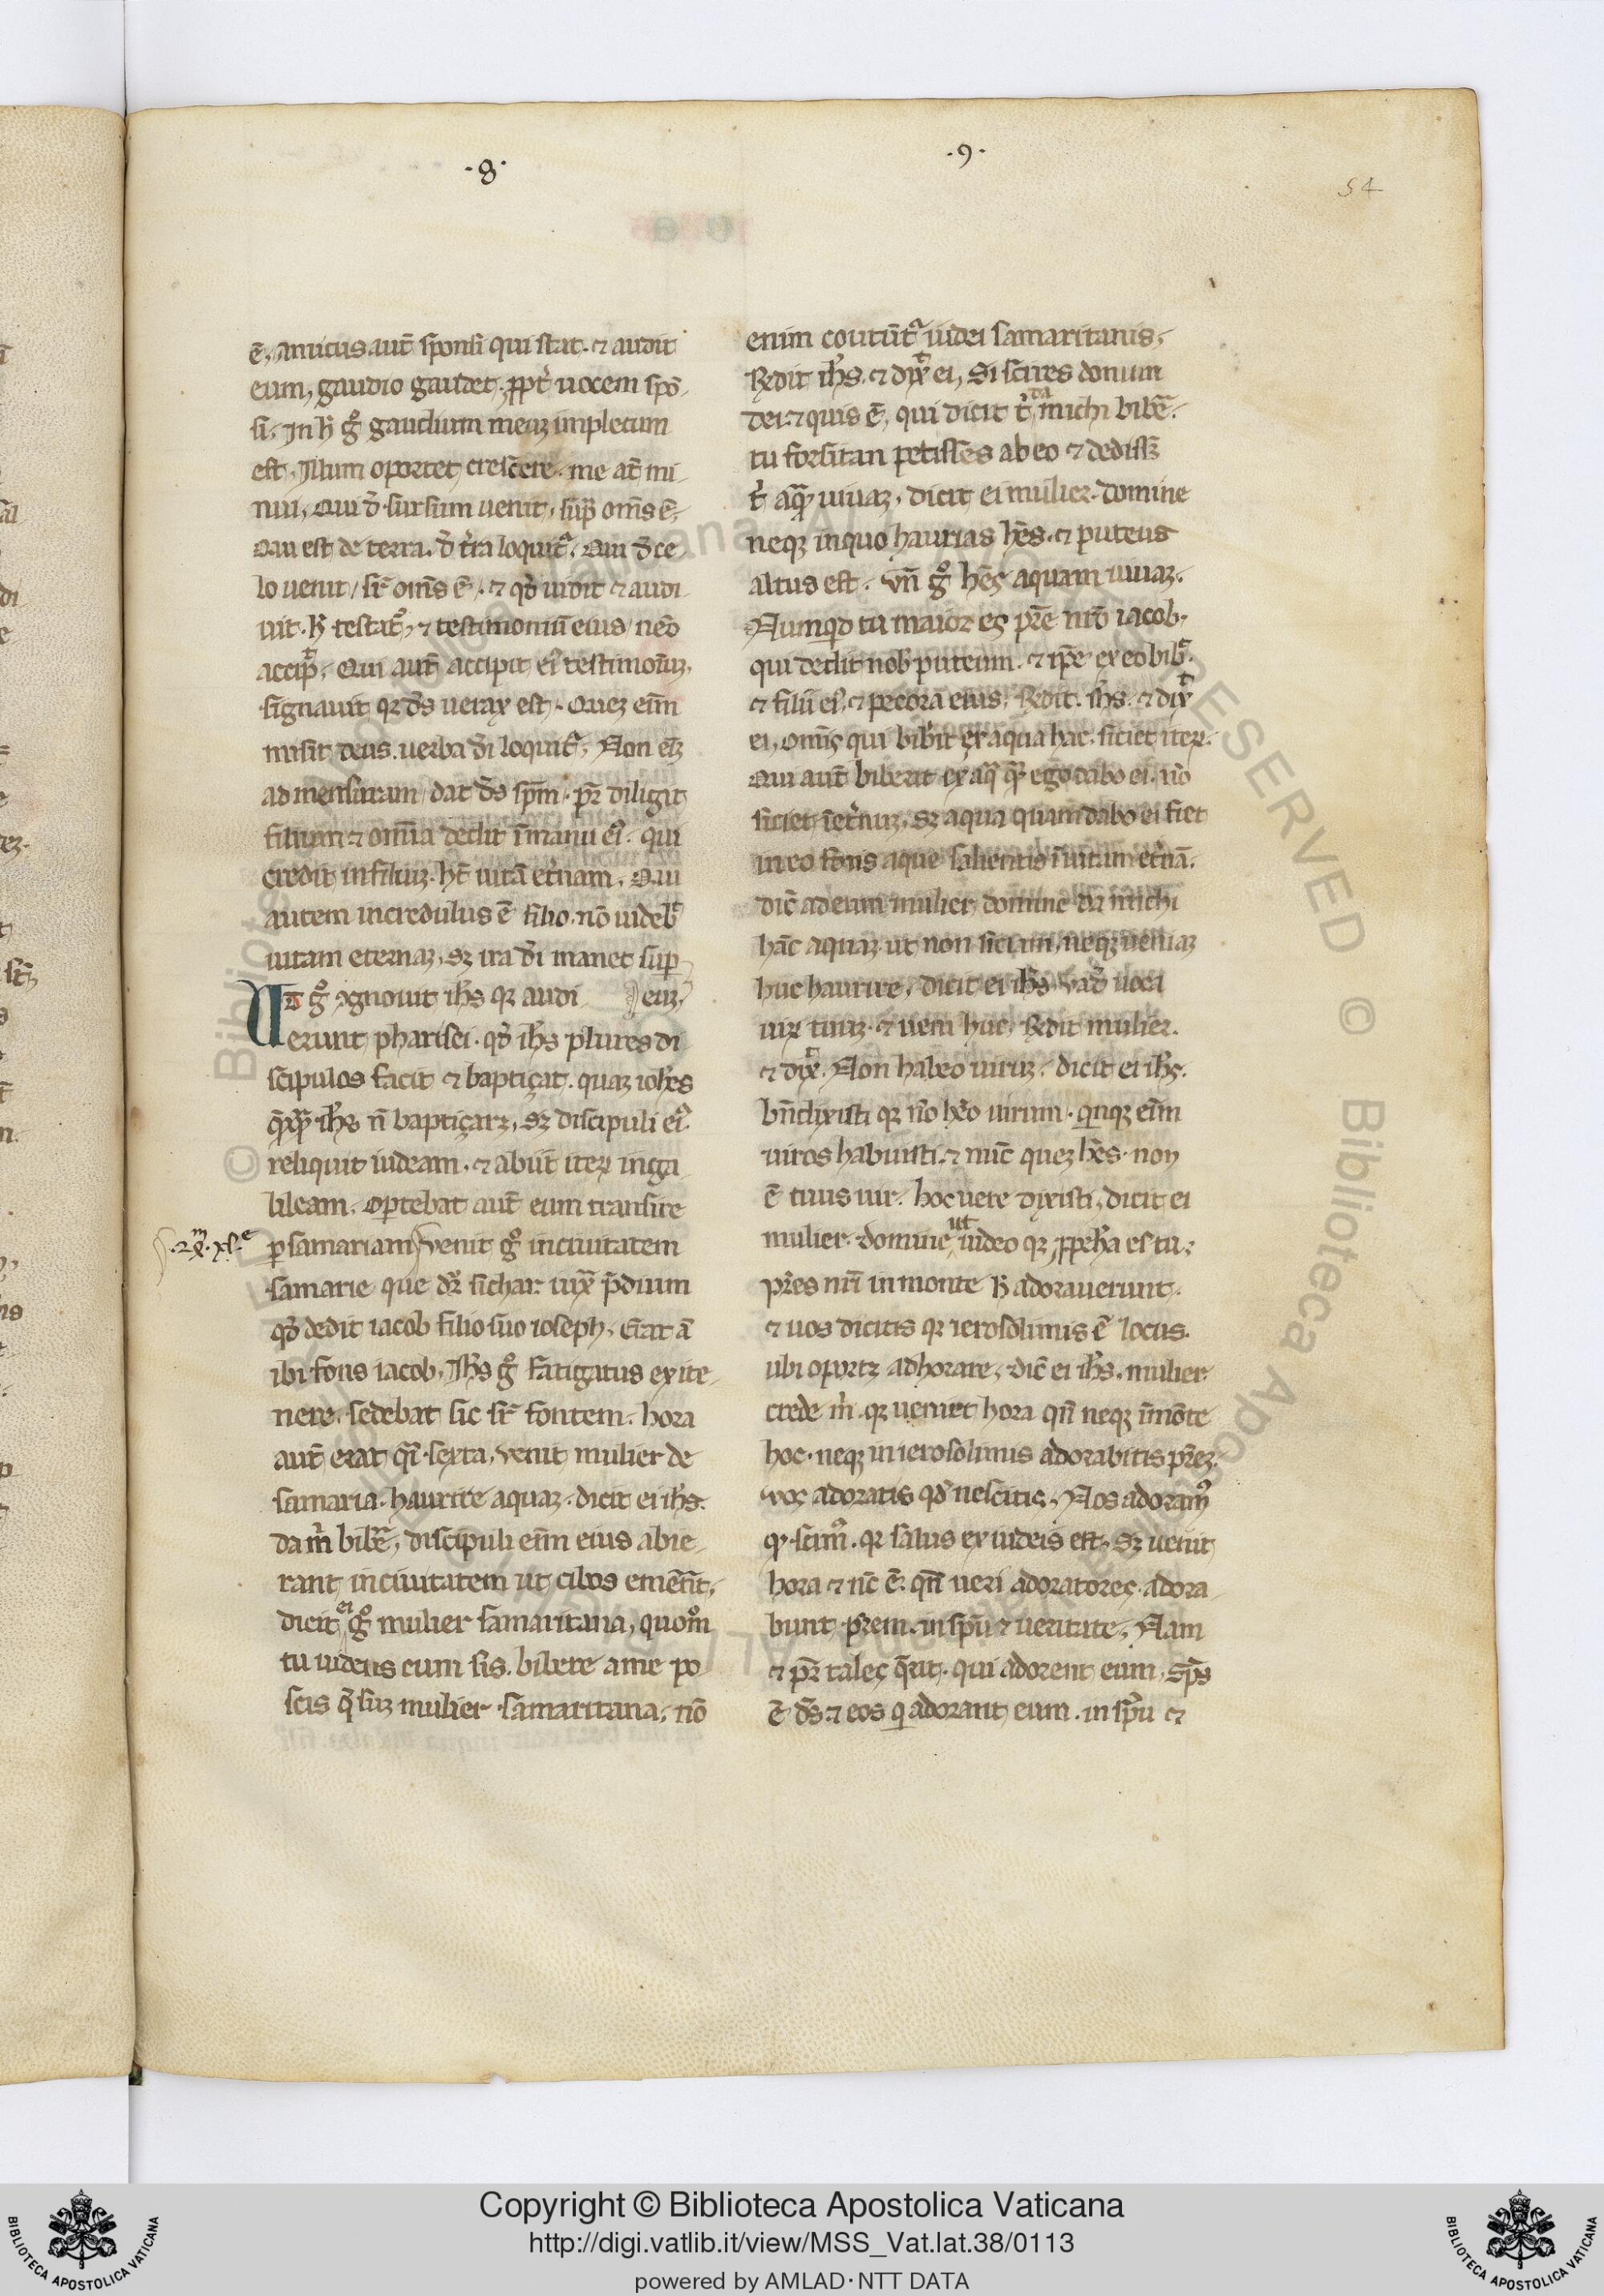 ·8·
·9·
54
ē, amicus aut̄ sponsi qui stat. ⁊ audit
eum, gaudio gaudet. ꝓpt̕ uocem spō-
si. In h̕ gͦ gaudium meuꝫ impletum
est. Illum oportet crescere. me at̄ mi-
nui. Qui d̕ sursum uenit, sup̄ om̄s ē.
Qui est de terra. d̕ t̕ra loquit̕. Qui d̕ ce
lo uenit / sr̄ om̄s ē. ⁊ qd̕ uidit ⁊ audi
uit. h̕ testat̕, ⁊ testimoniū eius / nēo
accip̄. Qui aut̄ accipit ei᷒ testimoniuꝫ,
signauit qꝛ ds̄ uerax est. Queꝫ eīm
misit deus. uerba dī loquit̕. Non eīꝫ
ad mensuram / dat ds̄ sp̄m. pr̄ diligit
filium ⁊ omīa dedit ī manu ei᷒. qui
credit in filiuꝫ. ht̄ uitā et̕nam. Qui
autem incredulus ē filio. nō uideb̕
uitam eternaꝫ, sꝫ ira dī manet sup̱
Ut gͦ cognouit ihs̄ qꝛ audi eūꝫ,
erunt pharisei. qd̕ ihs̄ plures di
scipulos facit ⁊ baptiçat. quaꝫ ioh̄es
q̄ꝗ̄ ihs̄ n̄ baptiçarꝫ, sꝫ discipuli ei᷒.
reliquit iudeam. ⁊ abiit iteꝝ in ga
lileam. Oꝑtebat aut̄ eum transire
ꝑ samariam Venit gͦ in ciuitatem
samarie que dr̄ sichar. iux̄ p̄dium
qd̕ dedit iacob filio suo ioseph. Erat ā
ibi fons iacob. Ihs̄ gͦ fatigatus ex ite-
nere. sedebat sic sr̄ fontem. hora
aut̄ erat qⁱ sexta, Venit mulier de
samaria. haurire aquaꝫ. dicit ei ihs̄.
da m̕ bib̕e, discipuli eīm eius abie-
rant in ciuitatem ut cibos emēr̄t.
dicit ei gͦ mulier samaritana, quom̊
tu iudeus cum sis. bibere a me po
scis q̄ suꝫ mulier samaritana, nō
enim coutūt̕ iudei samaritanis.
Rn̄dit ihs̄. ⁊ dix̄ ei, Si scires donum
dei. ⁊ quis ē, qui dicit t̕ da michi bib̄e.
tu forsitan petisses ab eo ⁊ dedissꝫ
t̕ aq̄ uiuaꝫ, dicit ei mulier. domine
neqꝫ in quo haurias hēs. ⁊ puteus
altus est. Vn̄ gͦ hēs aquam uiuaꝫ.
Numqd̕ tu maior es pr̄e nr̄o iacob.
qui dedit nob̕ puteum. ⁊ ip̄e ex eo bib̕.
⁊ filii ei᷒. ⁊ pecora eius, Rn̄dit. ihs̄. ⁊ dix̄
ei, omīs qui bib̕it ex aqua hac. sitiet iteꝝ.
Qui aut̄ biberit ex aq̄ q̄ ego dabo ei. nō
sitiet ī et̕nuꝫ, sꝫ aqua quam dabo ei fiet
in eo fons aque salientis ī uitam et̕nā.
dic̄ ad eum mulier. domine da michi
hāc aquaꝫ ut non sitiam, neqꝫ ueniaꝫ
huc haurire, dicit ei ihs̄. Vade uoca
uiꝝ tuuꝫ ⁊ ueni huc, Rn̄dit mulier.
⁊ dix̄. Non habeo uiruꝫ. dicit ei ihs̄.
bn̄ dixisti qꝛ nō hēo uirum. qⁱnqꝫ eīm
uiros habuisti. ⁊ nūc queꝫ hēs. non
ē tuus uir. hoc uere dixisti, dicit ei
mulier. domine ut uideo qꝛ ꝓph̄a es tu.
pr̄es nr̄i in monte h̕ adorauerunt.
⁊ uos dicitis qꝛ ierosolimis ē locus.
ubi oportꝫ adhorare, dic̄ ei ihs̄. mulier
crede m̕. qꝛ ueniet hora qn̄ neqꝫ ī mōte
hoc. neqꝫ in ierosolimis adorabitis pr̄eꝫ.
vos adoratis qd̕ nescitis, Nos adoram᷒
qd̕ scim᷒. qꝛ salus ex iudeis est. Sꝫ uenit
hora ⁊ nc̄ ē. qn̄ ueri adoratores. adora
bunt pr̄em. in sp̄u ⁊ ueritate, Nam
⁊ pr̄ tales q̄rit. qui adorent eum. Sp̄s
ē ds̄. ⁊ eos qⁱ adorant eum. in sp̄u ⁊
Copyright © Biblioteca Apostolica Vaticana
http://digi.vatlib.it/view/MSS_Vat.lat.38/0113
powered by AMLAD·NTT DATA
BIBLIOTECA APOSTOLICA VATICANA
BIBLIOTECA APOSTOLICA VATICANA